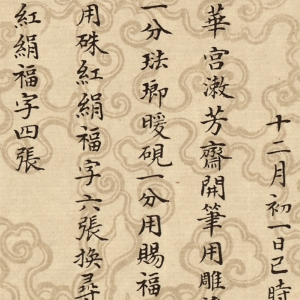 十二月初一日巳時
華宮漱芳齋開筆用雕
一分琺瑯暖硯一分用賜福
用硃紅絹福字六張換尋
紅絹福字四張